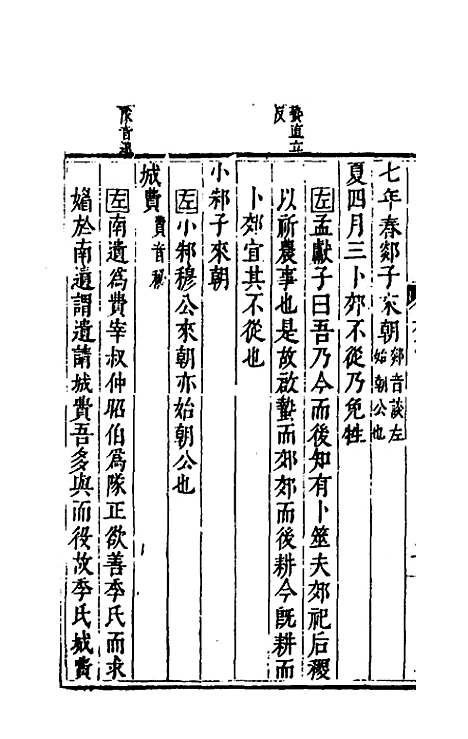 蟄直立反
七年春郯子來朝郯音談左始朝公也
夏四月三卜郊不從乃免牲
左孟獻子曰吾乃今而後知有卜筮夫郊祀后稷
以祈農事也是故啟蟄而郊郊而後耕今旣耕而
卜郊宜其不從也
小邾子來朝
左小邾穆公來朝亦始朝公也
隊音遂
城費費音祕
左南遺為費宰叔仲昭伯為隊正欲善季氏而求
媚於南遺謂遺請城費吾多與而役故季氏城費